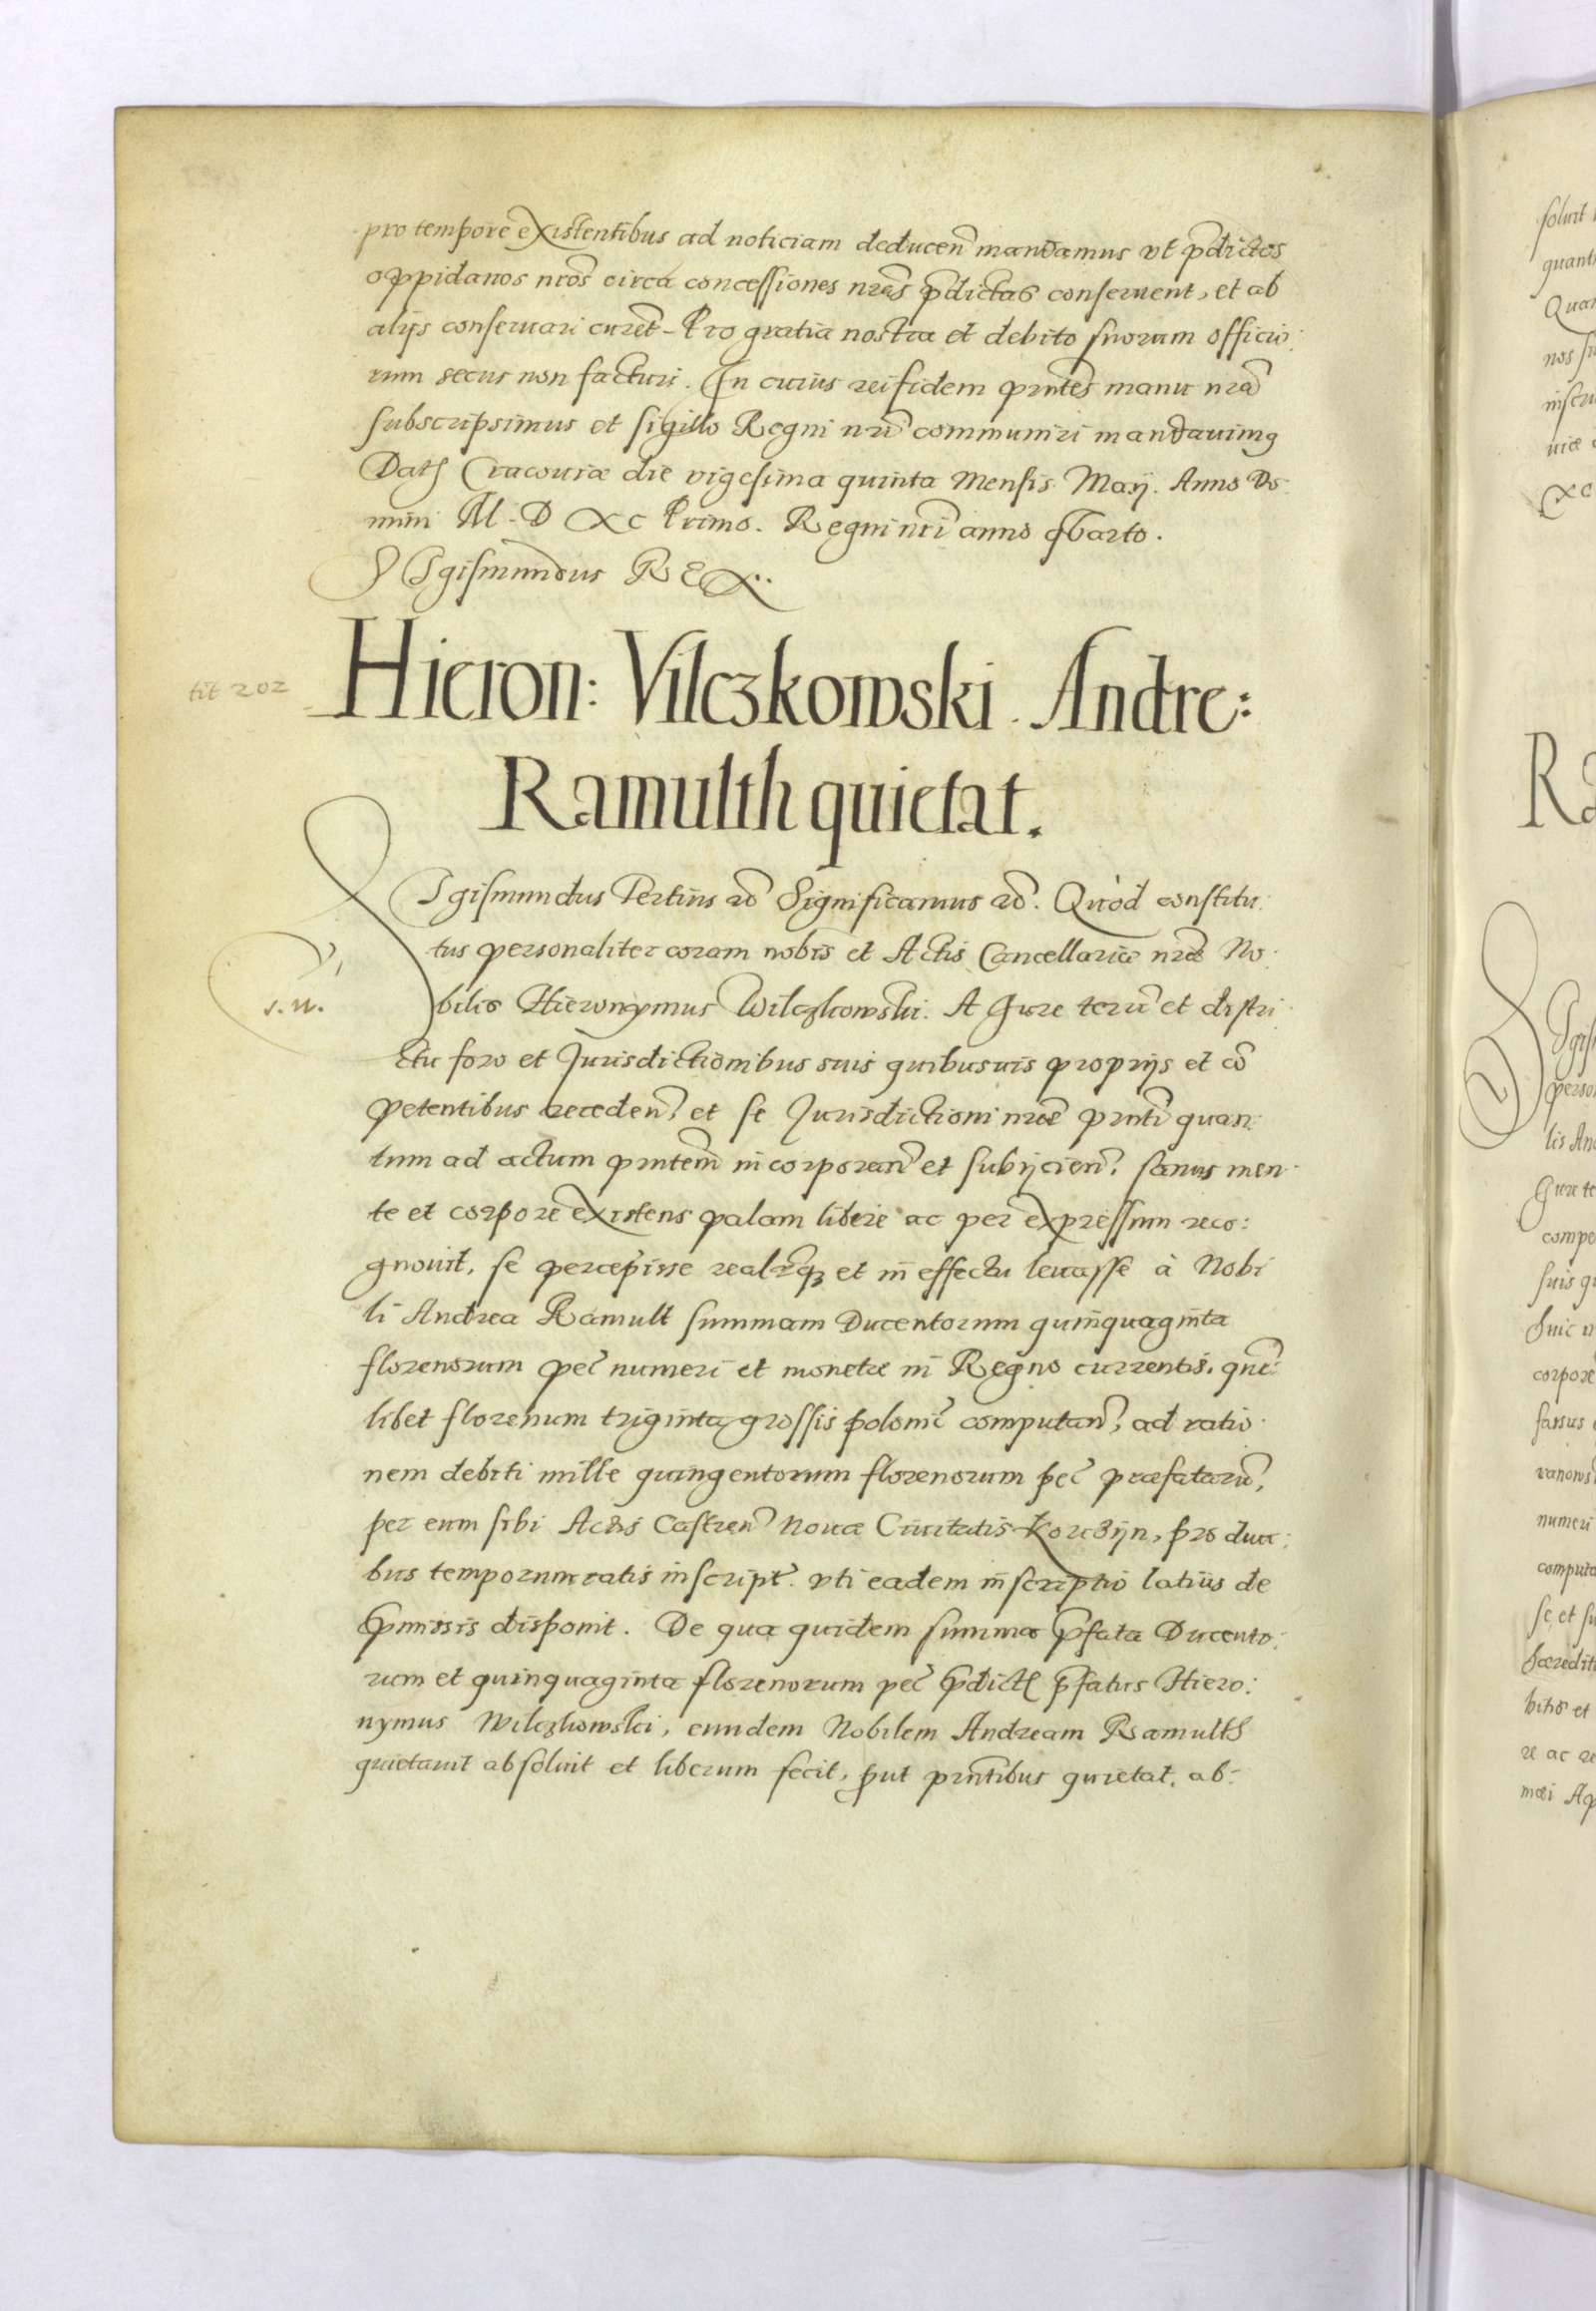 pro tempore existentibus ad noticiam deducen mandamus vt pdictos
oppidanos nros circa concessiones nras pdictas conseruent, et ab
alijs conseruari curet. Pro gratia nostra et debito suorum officio:
rum secus non facturi. In cuius rei fidem pntes manu nra
subscripsimus et sigillo Regni nri communiri mandauimg
Dath Cracouiæ die vigesima quinta Mensis Maij. Anno Do
mini M. D XC Primo. Regni nri anno qVarto.
SIgismundus REX..
tit 202
Hieron: Vilczkowski. Andre:
Ramulth quietat.
SIgismundus Tertius etc Significamus etc. Quod constitu:
tus personaliter coram nobis et Actis Cancellariæ nræ No:
s. n.
bilis Hieronymus Wilczkowski. A Jure teru et distri
ctu foro et Jurisdictionibus suis quibusuis proprijs et co
petentibus receden, et se Jurisdictioni nræ pnti quan:
tum ad actum pntem incorporan et subijcien, sanus men
te et corpore existens palam libere ac per expressum reco:
gnouit, se percepisse realrq et in effectu leuasse à Nobi
li Andrea Ramult summam Ducentorum quinquaginta
florenorum pec numeri et monetæ in Regno currentis, que
libet florenum triginta grossis polonic computan, ad ratio
nem debiti mille quingentorum florenorum pec præfataru,
per eum sibi Actis Castren Nouæ Ciuitatis Korczijn, pro dua:
bus temporum ratis inscript. vti eadem inscriptio latius de
pmissis disponit. De qua quidem summa pfata Ducento:
rum et quinquaginta florenorum pec pdict pfatus Hiero:
nymus Wilczkowski, eundem Nobilem Andream Ramulth
quietauit absoluit et liberum fecit, put pntibus quietat, ab: